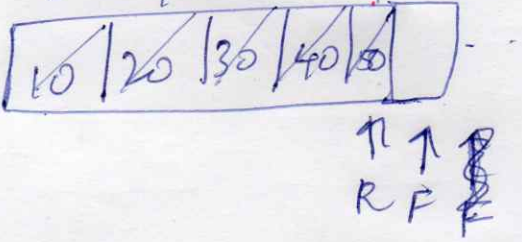 10 20 30 40 50
R F